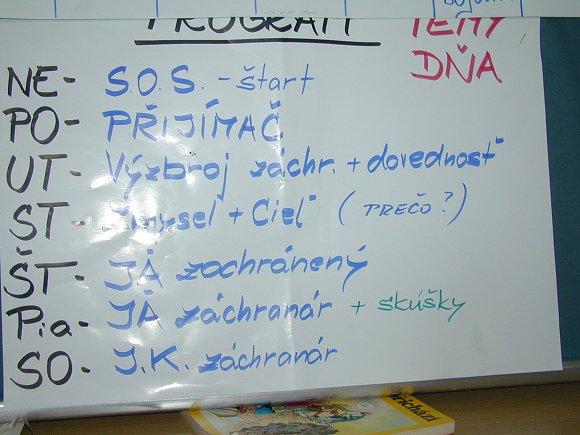 PROGRAM TÉMY
DŇA
NE- S.O.S. - štart
PO- PŘIJÍMAČ
UT- Výzbroj záchr. + dovednosť
ST- Zmysel + Cieľ (PREČO?)
ŠT- JÁ zachránený
Pia- JÁ záchranár + skúšky
SO- J.K. záchranár
přichází